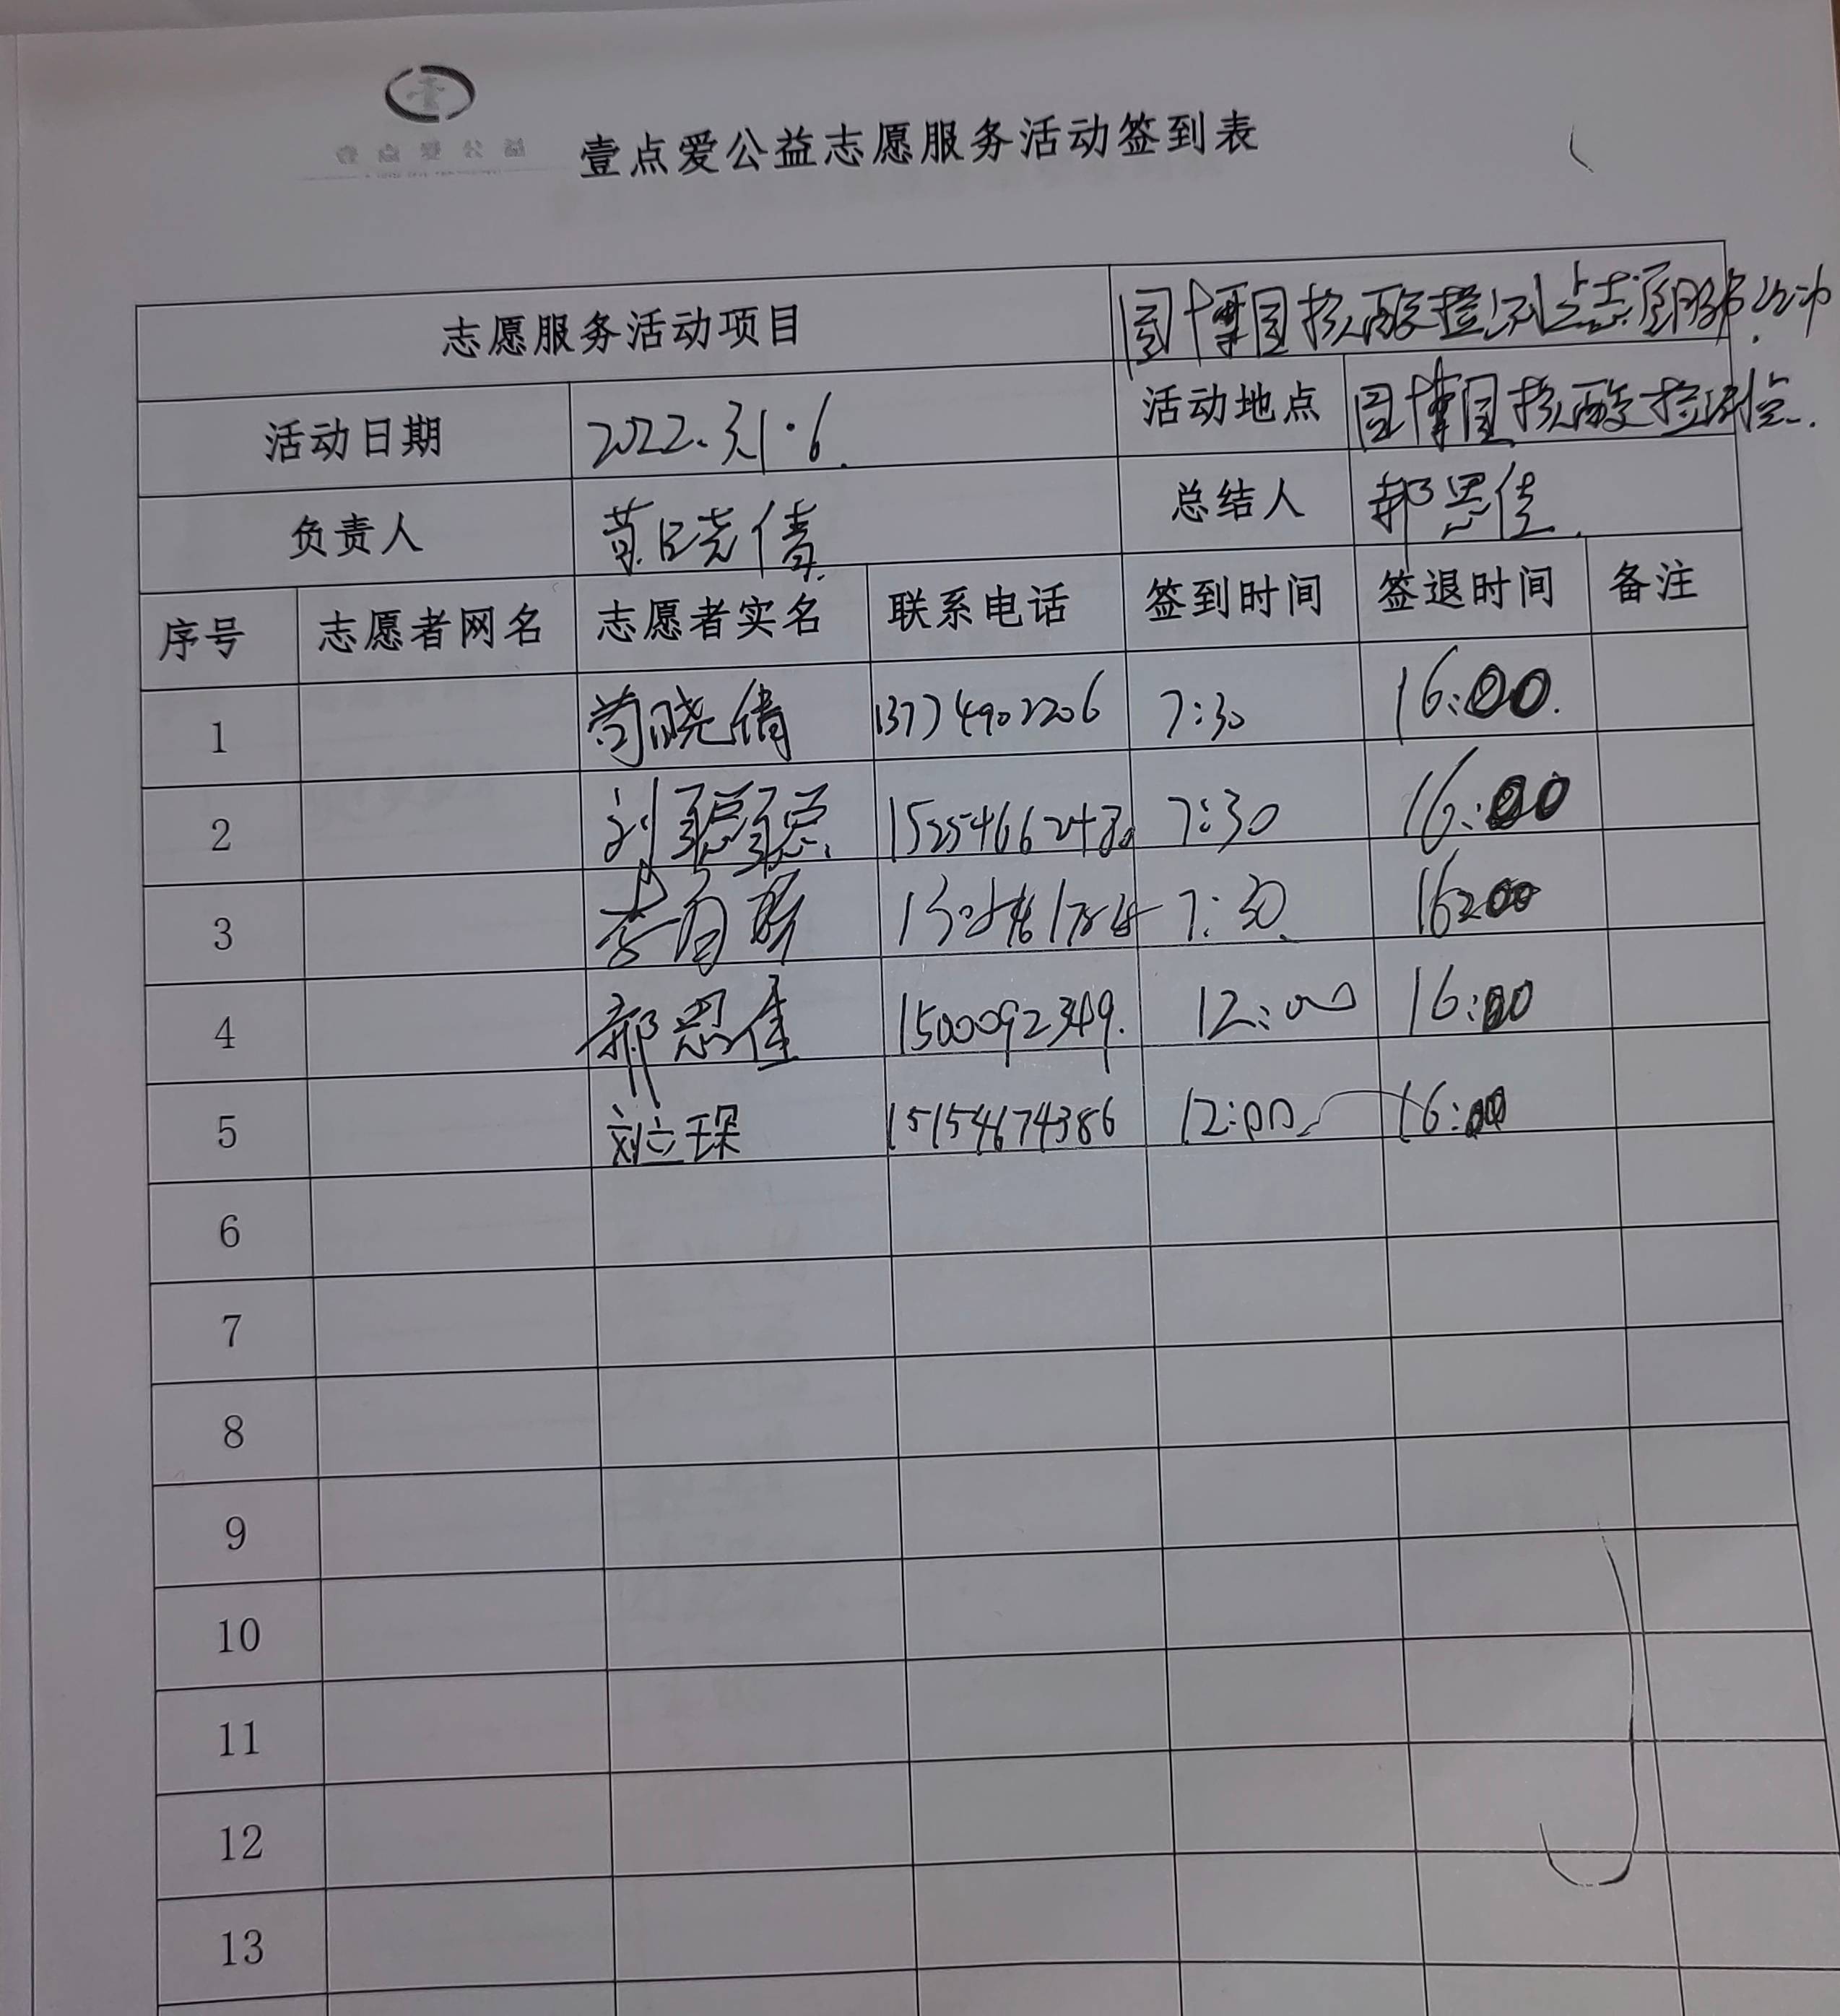 壹点爱公益
壹点爱公益志愿服务活动签到表
志愿服务活动项目 园博园核酸检测点志愿服务活动
活动日期 2022.3.6 活动地点 园博园核酸检测点.
负责人 苟晓倩 总结人 郝思佳
序号 志愿者网名 志愿者实名 联系电话 签到时间 签退时间 备注
1 苟晓倩 13774902206 7:30 16:00
2 刘聪聪 7:30 16:00
3 7:30 16:00
4 郝思佳 1500092349 12:00 16:00
5 刘立琛 15154674386 12:00 16:00
6
7
8
9
10
11
12
13